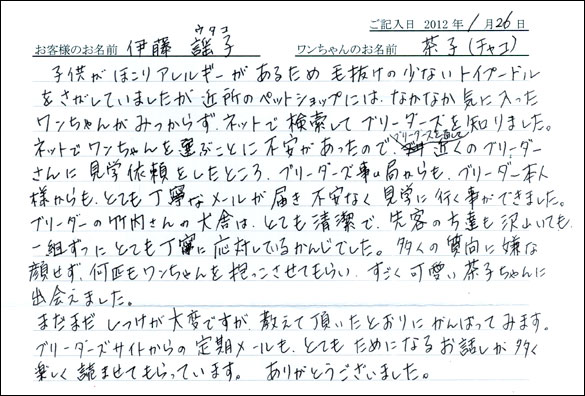 ご記入日 2012 年 1 月 26 日
ウタコ
お客様のお名前 伊藤 謡子 ワンちゃんのお名前 茶子(チャコ)
子供がほこりアレルギーがあるため毛抜けの少ないトイプードル
をさがしていましたが近所のペットショップには、なかなか気に入った
ワンちゃんがみつからず、ネットで検索してブリーダーズを知りました。
ブリーダーズを通して
ネットでワンちゃんを選ぶことに不安があったので 近くのブリーダー
さんに見学依頼をしたところ、ブリーダーズ事ム局からも、ブリーダー本人
様からも、とても丁寧なメールが届き不安なく見学に行く事ができました。
ブリーダーの竹内さんの犬舎は、とても清潔で、先客の方達も沢山いても、
一組ずつにとても丁寧に応対しているかんじでした。多くの質向に嫌な
顔せず、何匹もワンちゃんを抱っこさせてもらい、すごく可愛い茶子ちゃんに
出会えました。
まだまだしつけが大変ですが、教えて頂いたとおりにがんばってみます。
ブリーダーズサイトからの定期メールも、とてもためになるお話しが多く
楽しく読ませてもらっています。 ありがとうございました。